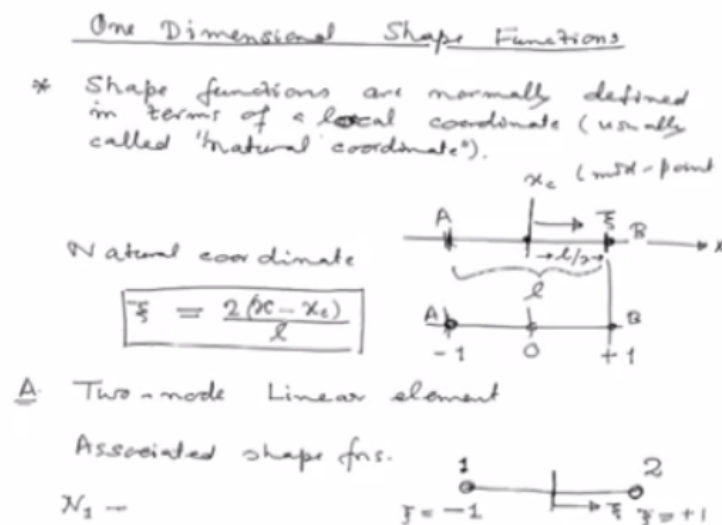 One Dimensional Shape Functions
* Shape functions are normally defined
in terms of a local coordinate (usually
called "natural coordinate").
x_c (mid-point
A ξ B x
Natural coordinate
l/2
l
ξ = 2(x - x_c) / l
A B
-1 0 +1
A. Two-node Linear element
Associated shape fns.
1 2
N_1 -
ξ = -1 ξ ξ = +1